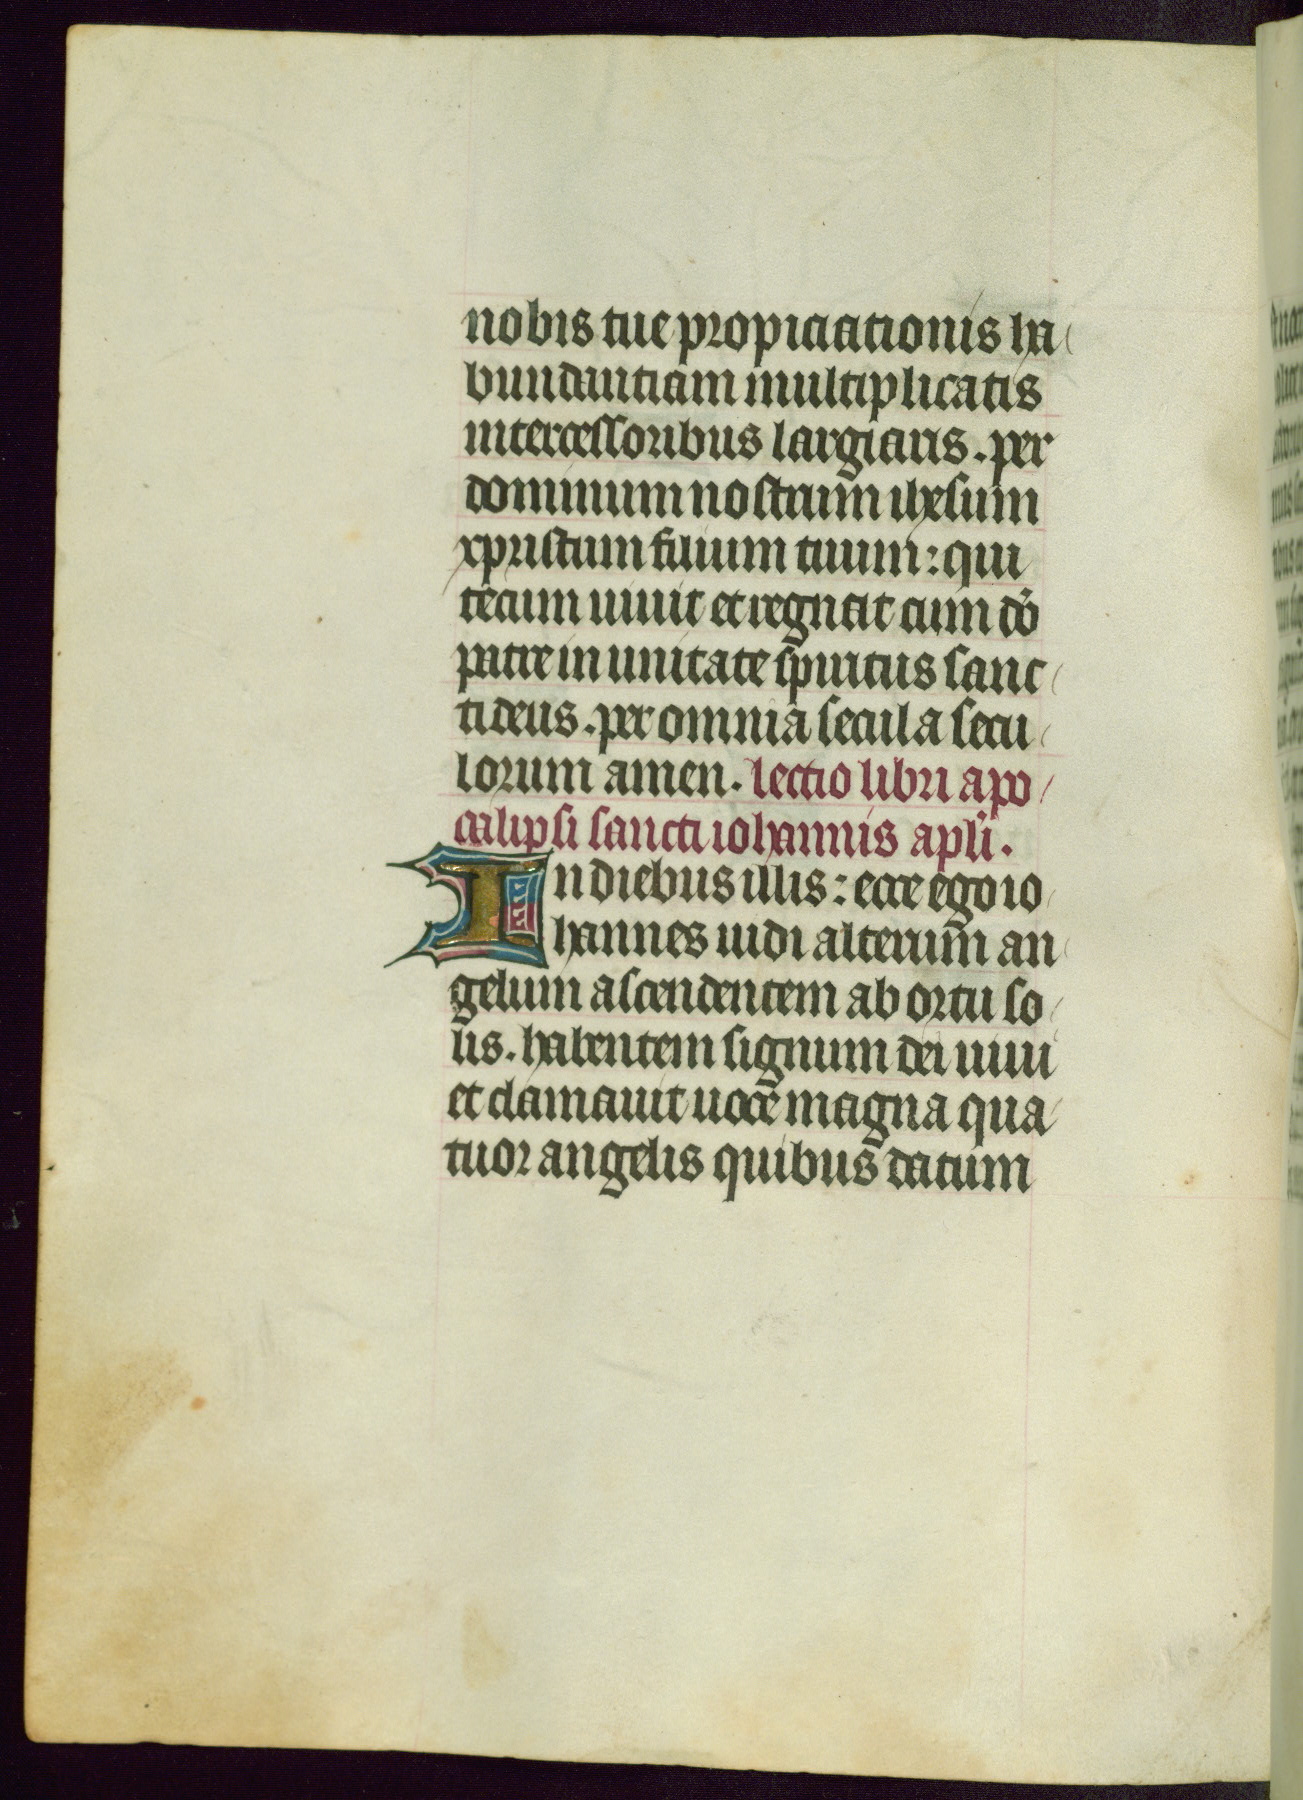 nobis tue propiciationis ha
bundantiam multiplicatis
intercessoribus largiaris. per
dominum nostrum ihesum
xpristum filium tuum: qui
tecum uiuit et regnat cum dō
patre in unitate spiritus sanc
ti deus. per omnia secula secu
lorum amen. lectio libri apo
calipsi sancti iohannis apli.
In diebus illis: ecce ego io
hannes uidi alterum an
gelum ascendentem ab ortu so
lis. habentem signum dei uiui
et clamauit uoce magna qua
tuor angelis quibus datum